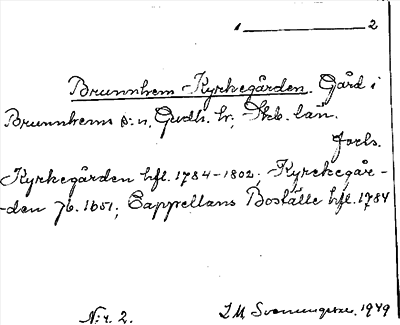 1 2
Brunnhem-Kyrkegården. Gård i
Brunnhems s:n, Gudh. hr; Skb. län.
Kyrkegården hfl. 1784-1802; Kyrckegår-
-den Jb. 1651; Cappellans Boställe hfl. 1784
N:r. 2. I.M. 1949